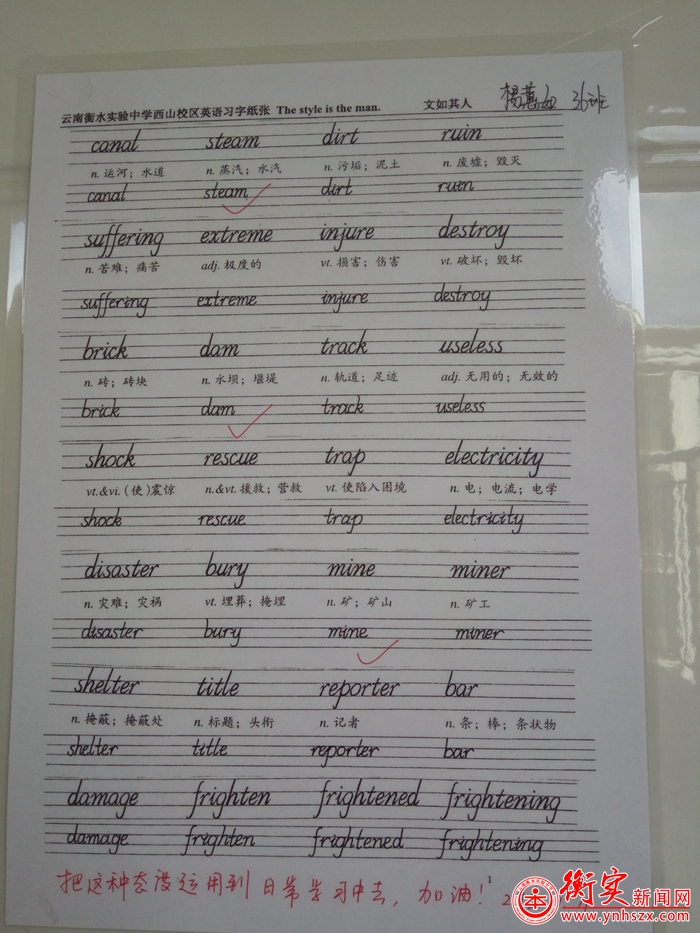 云南衡水实验中学西山校区英语习字纸张 The style is the man. 文如其人 杨蕙如 36班
canal steam dirt ruin
n. 运河；水道 n. 蒸汽；水汽 n. 污垢；泥土 n. 废墟；毁灭
canal steam dirt ruin
suffering extreme injure destroy
n. 苦难；痛苦 adj. 极度的 vt. 损害；伤害 vt. 破坏；毁坏
suffering extreme injure destroy
brick dam track useless
n. 砖；砖块 n. 水坝；堰堤 n. 轨道；足迹 adj. 无用的；无效的
brick dam track useless
shock rescue trap electricity
vt.&vi. (使)震惊 n.&vt. 援救；营救 vt. 使陷入困境 n. 电；电流；电学
shock rescue trap electricity
disaster bury mine miner
n. 灾难；灾祸 vt. 埋葬；掩埋 n. 矿；矿山 n. 矿工
disaster bury mine miner
shelter title reporter bar
n. 掩蔽；掩蔽处 n. 标题；头衔 n. 记者 n. 条；棒；条状物
shelter title reporter bar
damage frighten frightened frightening
damage frighten frightened frightening
1
把这种态度运用到日常学习中去，加油！
衡实新闻网
www.ynhszx.com